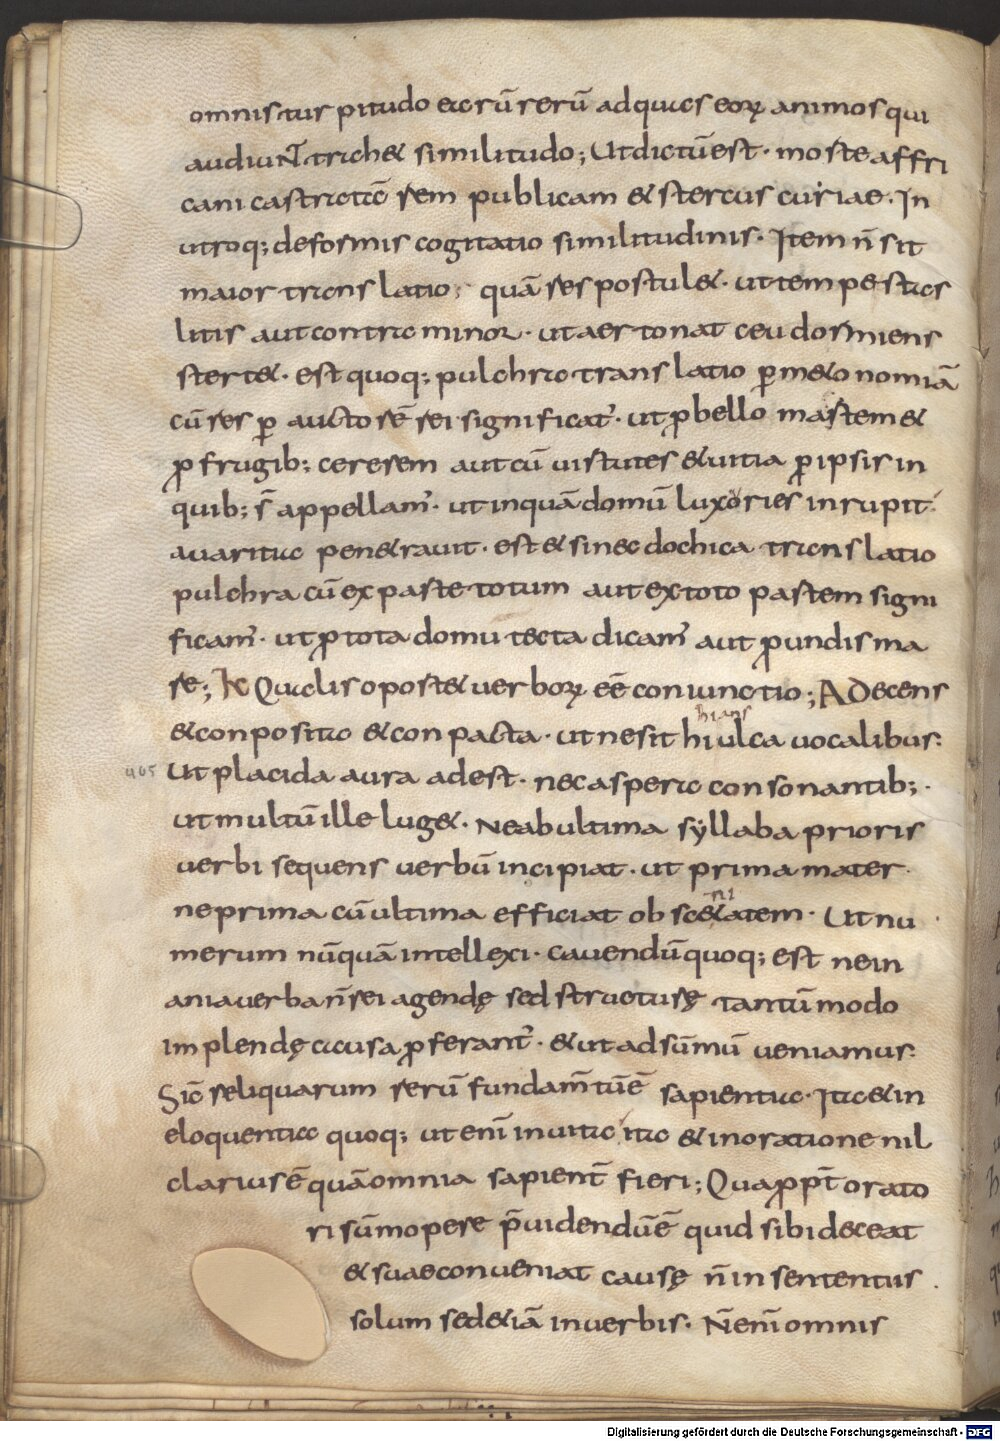 omnis turpitudo earū rerū ad quas eorꝝ animos qui
audiunt̄ trahet similitudo; Ut dictū est · morte affri
cani castratā rem publicam et stercus curiae · In
utroq; deformis cogitatio similitudinis · Item n̄ sit
maior translatio; quā res postulet · ut tempestas
litis aut contra minor · ut aer tonat ceu dormiens
stertet · est quoq; pulchra translatio ꝑ metonomiā
cū res ꝑ auctorē rei significat᷑ · ut ꝓ bello martem et
ꝓ frugib; cererem aut cū uirtutes et uitia ꝓ ipsis in
quib; s̄ appellam᷑ · ut inquā domū luxories inrupit
auaritia penetrauit · est et sinecdochica translatio
pulchra cū ex parte totum aut ex toto partem signi
ficam᷑ · ut ꝓ tota domu tecta dicam᷑ aut ꝓ undis ma
re; K Qualis oportet uerborꝝ eē coniunctio; A Decens
et conposita et conpacta · ut ne sit hiulca uocalibus:
hians
ut placida aura adest · nec aspera consonantib; ·
405
ut multū ille luget · Ne ab ultima syllaba prioris
uerbi sequens uerbū incipiat · ut prima mater ·
ne prima cū ultima efficiat obscetatem · Ut nu
ni
merum nūquā intellexi · cauendū quoq; est ne in
ania uerba n̄ rei agendę sed structurę tantū modo
implendę causa ꝓferant᷑ · et ut ad sūmū ueniamus:
Sic̄ reliquarum rerū fundam̄tū ē sapientia · Ita et in
eloquentia quoq; ut eni̅ in uita ita et in oratione nil
clarius ē quā omnia sapient̄ fieri; Quaꝓpt̄ orato
ri sūmopere p̄uidendū ē quid sibi deceat
et suae conueniat causę n̄ in sententiis
solum sed etiā in uerbis · N̄ eni̅ omnis
Digitalisierung gefördert durch die Deutsche Forschungsgemeinschaft - DFG